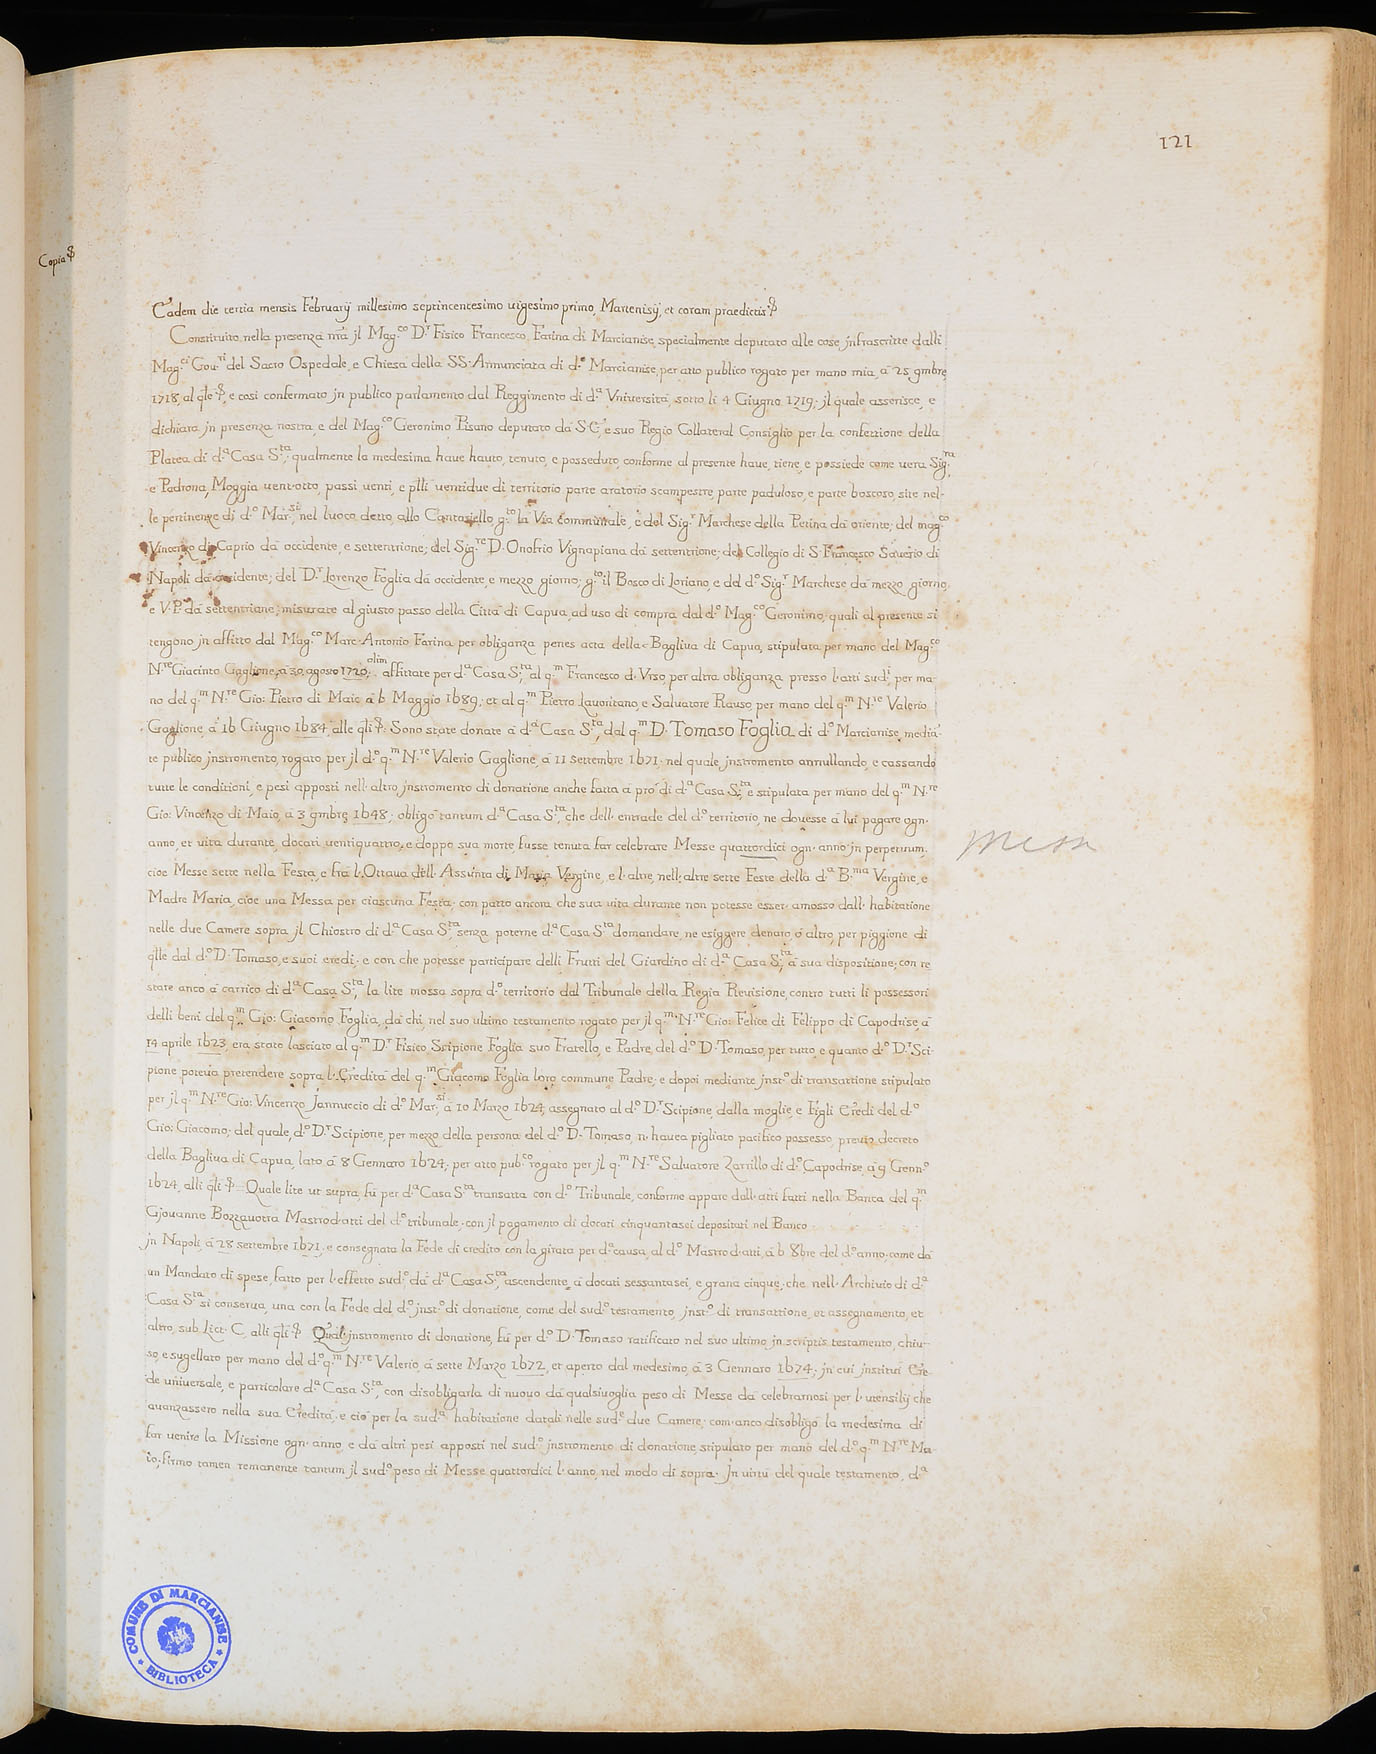 121
Copia
Eadem die tertia mensis Februarij millesimo septincentesimo uigesimo primo, Martenisij, et coram praedictis
Constituito nella presenza nr̃a jl Mag.co D.r Fisico Francesco Farina di Marcianise, specialmente deputato alle cose jnfrascritte dalli
Mag.ci Gou.ri del Sacro Ospedale, e Chiesa della SS. Annunciata di d.o Marcianise, per atto publico rogato per mano mia, à 25 9mbre
1718, al q̃le, e cosi confermato jn publico parlamento dal Reggimento di d.a Vniuersità, sotto li 4 Giugno 1719; jl quale asserisce, e
dichiara jn presenza nostra, e del Mag.co Geronimo Pisano deputato da S.C. e suo Regio Collateral Consiglio per la confettione della
Platea di d.a Casa S.ta, qualmente la medesima haue hauto, tenuto, e posseduto, conforme al presente haue, tiene, e possiede come uera Sig.ra
e Padrona, Moggia uent'otto, passi uenti, e p̃lli uentidue di territorio parte aratorio scampestre, parte paduloso, e parte boscoso, site nel-
le pertinenze di d.o Mar.si, nel luoco detto, allo Cantariello, g.to la Via Communale, e del Sig.r Marchese della Petina da oriente; del mag.co
Vincenzo di Caprio da occidente, e settentrione; del Sig.re D. Onofrio Vignapiana da settentrione; del Collegio di S. Francesco Sauerio di
Napoli da occidente; del D.r Lorenzo Foglia da occidente, e mezzo giorno; g.to il Bosco di Loriano, e dal d.o Sig.r Marchese da mezzo giorno,
e V.P. da settentrione; misurate al giusto passo della Città di Capua, ad uso di compra dal d.o Mag.co Geronimo; quali al presente si
tengono jn affitto dal Mag.co Marc'Antonio Farina per obliganza penes acta della Bagliua di Capua, stipulata per mano del Mag.co
N.re Giacinto Gaglione, à 30 agosto 1720; olim affittate per d.a Casa S.ta, al q.m Francesco d'Vrso, per altra obliganza presso l'atti sud.i, per ma-
no del q.m N.re Gio: Pietro di Maio à 6 Maggio 1689; et al q.m Pietro Lauoritano, e Saluatore Rauso, per mano del q.m N.re Valerio
Gaglione, à 16 Giugno 1684, alle q̃li. Sono state donate à d.a Casa S.ta, dal q.m D. Tomaso Foglia di d.o Marcianise, media-
te publico jnstromento, rogato per jl d.o q.m N.re Valerio Gaglione, à 11 settembre 1671; nel quale jnstromento annullando, e cassando
tutte le conditioni, e pesi apposti nell'altro jnstromento di donatione anche fatta à prò di d.a Casa S.ta, e stipulata per mano del q.m N.re
Gio: Vincenzo di Maio, à 3 9mbre 1648; obligò tantum d.a Casa S.ta, che dell'entrade del d.o territorio, ne douesse à lui pagare ogn'
anno, et uita durante, docati uentiquattro, e doppo sua morte, fusse tenuta far celebrare Messe quattordici ogn'anno jn perpetuum,
cioè Messe sette nella Festa, e frà l'Ottaua dell'Assunta di Maria Vergine, e l'altre, nell'altre sette Feste della d.a B.ma Vergine, e
Madre Maria, cioè una Messa per ciascuna Festa; con patto ancora che sua uita durante non potesse esser'amosso dall'habitatione
nelle due Camere sopra jl Chiostro di d.a Casa S.ta, senza poterne d.a Casa S.ta domandare, ne esiggere denaro, ò altro, per piggione di
q̃lle dal d.o D. Tomaso, e suoi eredi; e con che potesse participare delli Frutti del Giardino di d.a Casa S.ta, à sua dispositione; con re
stare anco à carrico di d.a Casa S.ta, la lite mossa sopra d.o territorio dal Tribunale della Regia Reuisione, contro tutti li possessori
delli beni del q.m Gio: Giacomo Foglia, da chi, nel suo ultimo testamento rogato per jl q.m N.re Gio: Felice di Filippo di Capodrise, à
14 aprile 1623, era stato lasciato al q.m D.r Fisico Scipione Foglia suo Fratello, e Padre, del d.o D. Tomaso, per tutto, e quanto d.o D.r Sci-
pione poteua pretendere sopra l'Eredità del q.m Giacomo Foglia loro commune Padre; e dopoi mediante jnst.o di transattione stipulato
per jl q.m N.re Gio: Vincenzo Jannuccio di d.o Mar.si, à 10 Marzo 1624, assegnato al d.o D.r Scipione, dalla moglie, e Figli Eredi del d.o
Gio: Giacomo; del quale, d.o D.r Scipione, per mezzo della persona del d.o D. Tomaso, n'hauea pigliato pacifico possesso, preuio decreto
della Bagliua di Capua, lato à 8 Gennaro 1624; per atto pub.co rogato per jl q.m N.re Saluatore Zarrillo di d.o Capodrise, à 9 Genn.o
1624, alli q̃li. Quale lite ut supra, fù per d.a Casa S.ta transatta con d.o Tribunale, conforme appare dall'atti fatti nella Banca del q.m
Giouanne Bozzauotra Mastrod'atti del d.o tribunale, con jl pagamento di docati cinquantasei depositati nel Banco
jn Napoli, à 28 settembre 1671, e consegnata la Fede di credito con la girata per d.a causa, al d.o Mastrod'atti, à 6 8bre del d.o anno, come da
un Mandato di spese, fatto per l'effetto sud.o da d.a Casa S.ta, ascendente à docati sessantasei, e grana cinque, che nell'Archiuio di d.a
Casa S.ta si conserua, una con la Fede del d.o jnst.o di donatione, come del sud.o testamento, jnst.o di transattione, et assegnamento, et
altro, sub Lict. C, alli q̃li. Qual'jnstromento di donatione, fù per d.o D. Tomaso ratificato nel suo ultimo, jn scriptis testamento, chiu-
so, e sugellato per mano del d.o q.m N.re Valerio, à sette Marzo 1672, et aperto dal medesimo, à 3 Gennaro 1674; jn cui jnstituì Ere-
de uniuersale, e particolare d.a Casa S.ta, con disobligarla di nuouo da qualsiuoglia peso di Messe da celebrarnosi per l'utensilij che
auanzassero nella sua Eredità, e ciò per la sud.a habitatione datali nelle sud.e due Camere; com'anco disobligò la medesima di
far uenire la Missione ogn'anno e da altri pesi apposti nel sud.o jnstromento di donatione, stipulato per mano del d.o q.m N.re Ma-
io, firmo tamen remanente tantum jl sud.o peso di Messe quattordici l'anno, nel modo di sopra. Jn uirtù del quale testamento, d.a
COMUNE DI MARCIANISE
BIBLIOTECA